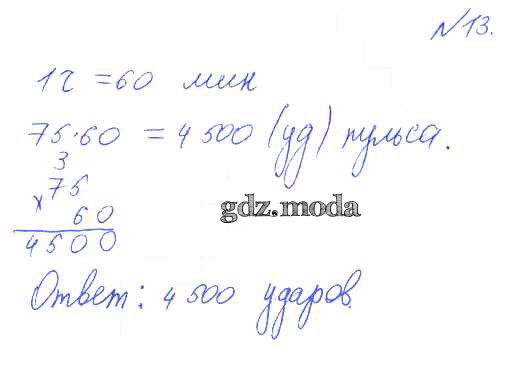 №13.
1ч = 60 мин
75·60 = 4 500 (уд) пульса.
3
×75
60
4500
gdz.moda
Ответ: 4 500 ударов.